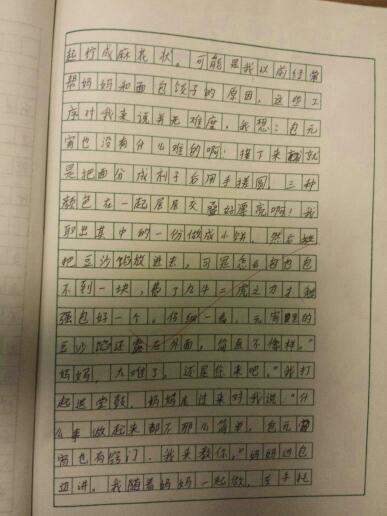 起拧成麻花状。可能是我以前经常
帮妈妈和面包饺子的原因，这些工
序对我来说并无难度，我想：包元
宵也没有什么难的啊！接下来就
是把面分成剂子后用手搓圆，三种
颜色在一起层层交叠好漂亮啊！我
取出其中的一份做成小饼，然后
把豆沙馅放进去，可是怎么包也包
不到一块，费了九牛二虎之力才勉
强包好一个。仔细一看，元宵里的
豆沙馅还露在外面，简直不像样。“
妈妈，太难了，还是你来吧。”我打
起退堂鼓，妈妈走过来对我说：“什
么事做起来都不那么简单，包元
宵也有窍门，我来教你。”妈妈边包
边讲。我随着妈妈一起做，至手